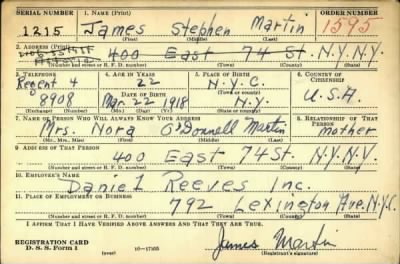 SERIAL NUMBER 1. NAME (Print) ORDER NUMBER
1215 James Stephen Martin 1595
(First) (Middle) (Last)
2. ADDRESS (Print)
400 East 74 St. N.Y. N.Y.
(Number and street or R. F. D. number) (Town) (County) (State)
3. TELEPHONE 4. AGE IN YEARS 5. PLACE OF BIRTH 6. COUNTRY OF CITIZENSHIP
Regent 4 22 N.Y.C.
DATE OF BIRTH (Town or county)
8908 Mar. 22 1918 N.Y. U.S.A.
(Exchange) (Number) (Mo.) (Day) (Yr.) (State or country)
7. NAME OF PERSON WHO WILL ALWAYS KNOW YOUR ADDRESS 8. RELATIONSHIP OF THAT PERSON
Mrs. Nora O'Donnell Martin mother
(Mr., Mrs., Miss) (First) (Middle) (Last)
9. ADDRESS OF THAT PERSON
400 East 74 St. N.Y. N.Y.
(Number and street or R. F. D. number) (Town) (County) (State)
10. EMPLOYER'S NAME
Daniel Reeves Inc.
11. PLACE OF EMPLOYMENT OR BUSINESS
792 Lexington Ave. N.Y.C.
(Number and street or R. F. D. number) (Town) (County) (State)
I AFFIRM THAT I HAVE VERIFIED ABOVE ANSWERS AND THAT THEY ARE TRUE.
REGISTRATION CARD
D. S. S. Form 1 16—17105 James Martin
(Registrant's signature)